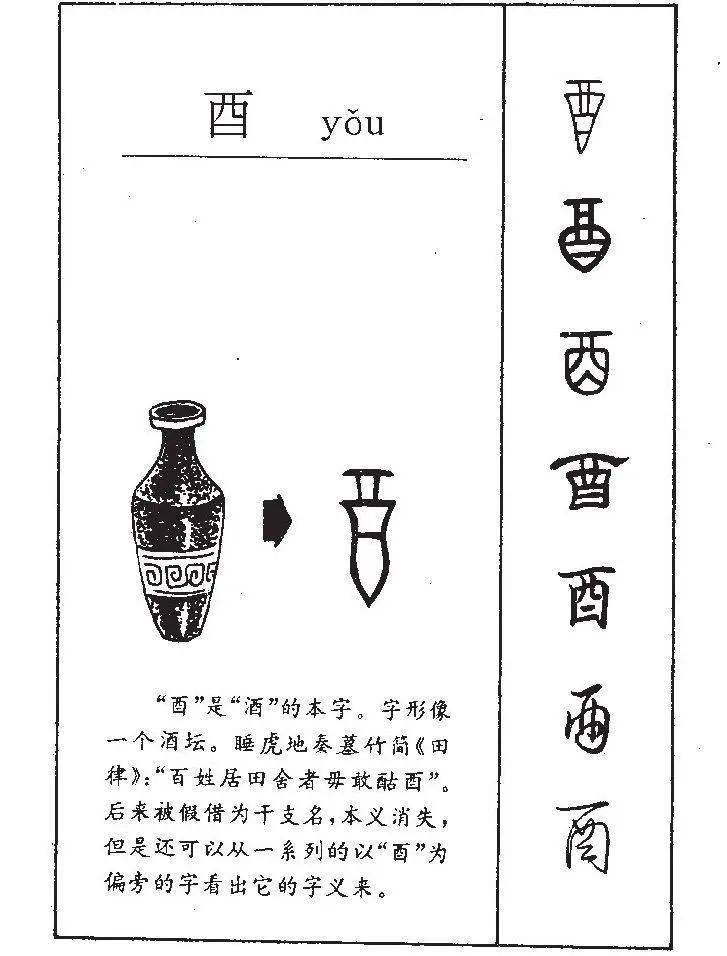 酉 yǒu
“酉”是“酒”的本字。字形像
一个酒坛。睡虎地秦墓竹简《田
律》:“百姓居田舍者毋敢酤酉”。
后来被假借为干支名,本义消失,
但是还可以从一系列的以“酉”为
偏旁的字看出它的字义来。
酉
酉
酉
酉
酉
酉
酉